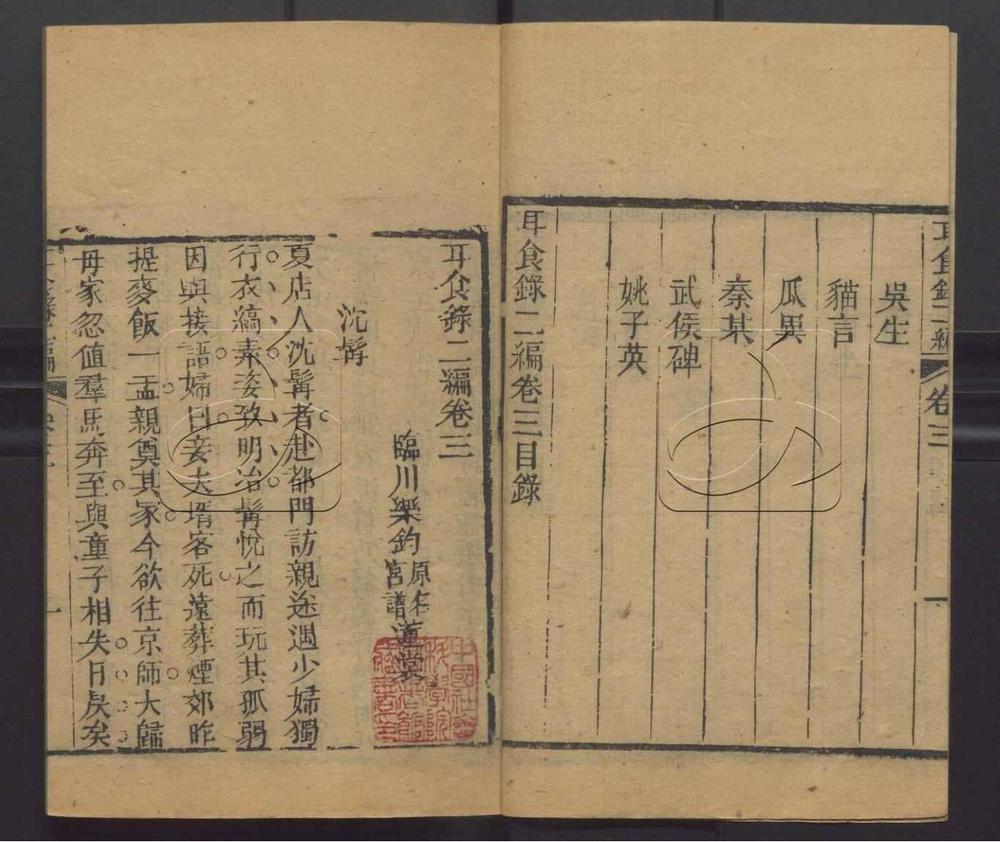 耳食錄二編
卷三
一
吳生
貓言
瓜異
秦某
武侯碑
姚子英
耳食錄二編卷三目錄
耳食錄二編卷三
臨川樂鈞
原名
宮譜
蓮裳
沈髯
夏店人沈髯者赴都門訪親迷遇少婦獨
行衣縞素姿致明冶髯悅之而玩其孤弱
因與接語婦曰妾夫壻客死遠葬煙郊昨
提麥飯一盂親奠其冢今欲往京師大歸
毋家忽值羣馬奔至與童子相失日昃矣
一